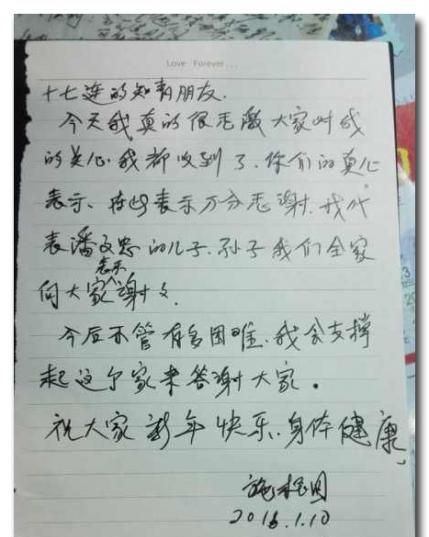 Love Forever...
十七连的知青朋友.
今天我真的很感激大家对我
的关心.我都收到了.你们的真心
表示、在此表示万分感谢.我代
表潘文忠的儿子.孙子我们全家
向大家表示谢意.
今后不管有多困难.我会支撑
起这个家来答谢大家。
祝大家新年快乐.身体健康
2016.1.10